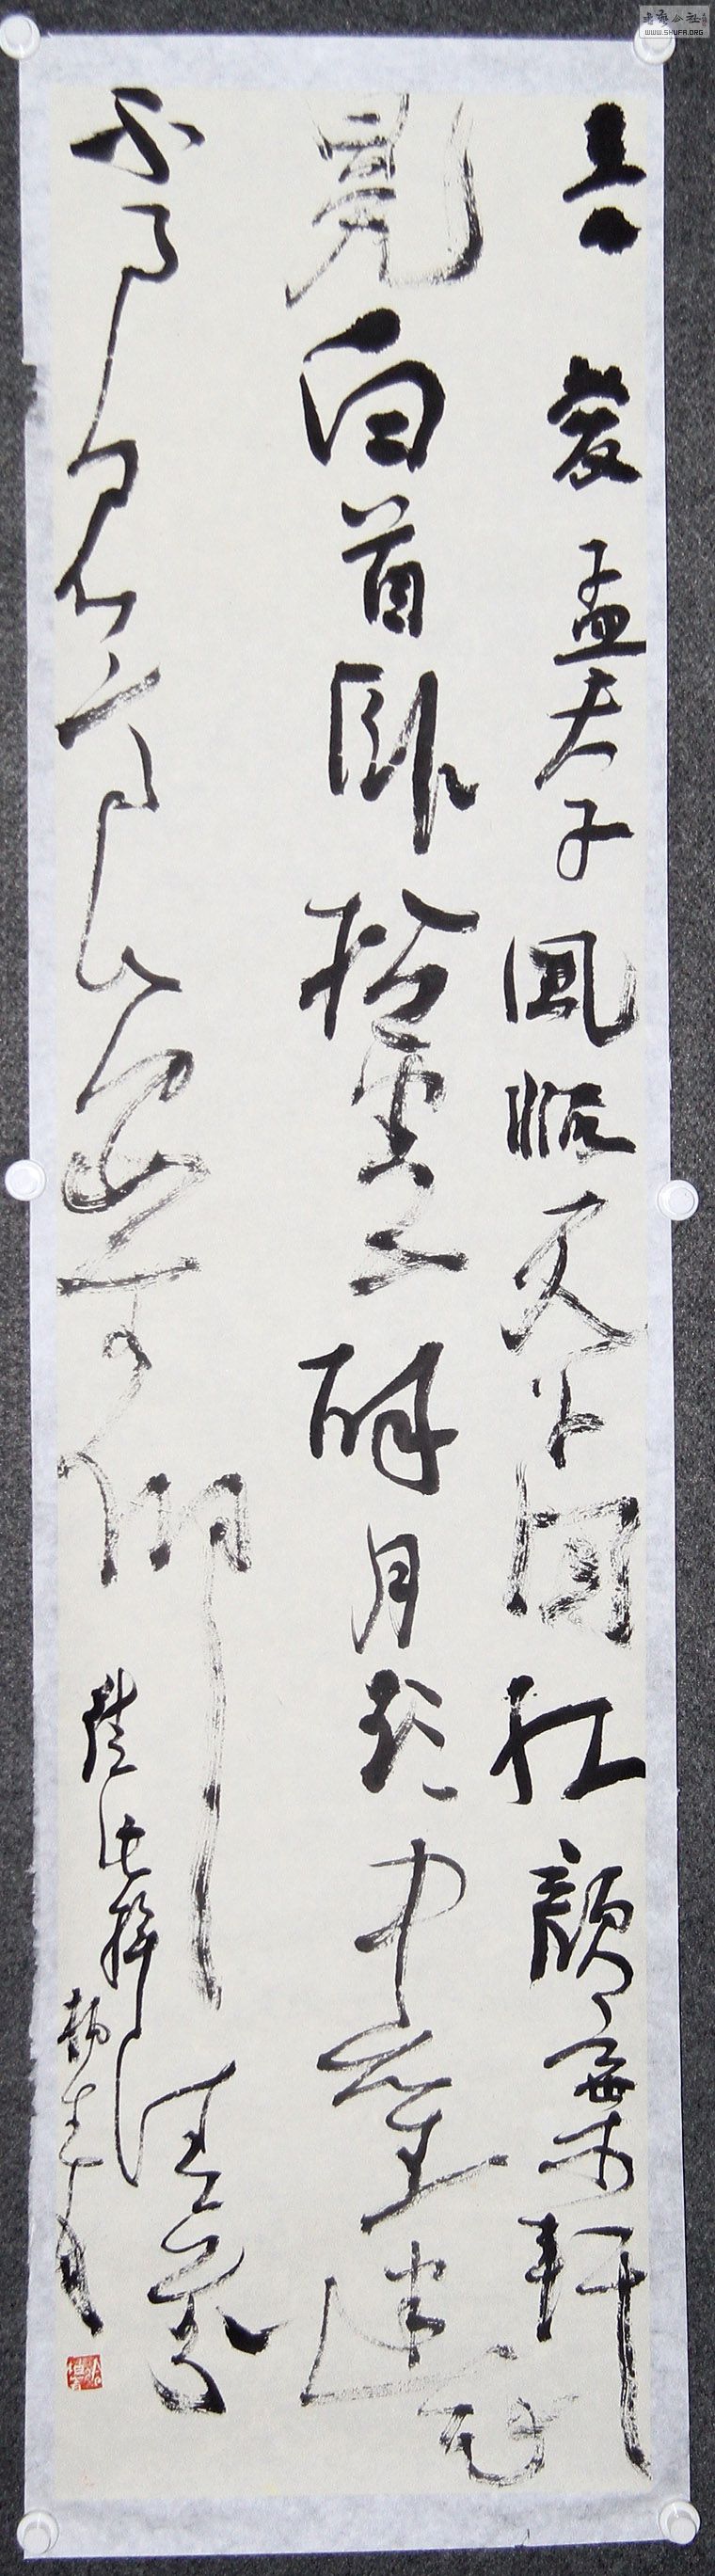 吾愛孟夫子風流天下聞紅顏棄軒
冕白首臥松雲醉月頻中聖迷花
不事君高山安可仰徒此揖
清芬
WWW.SHUFA.ORG